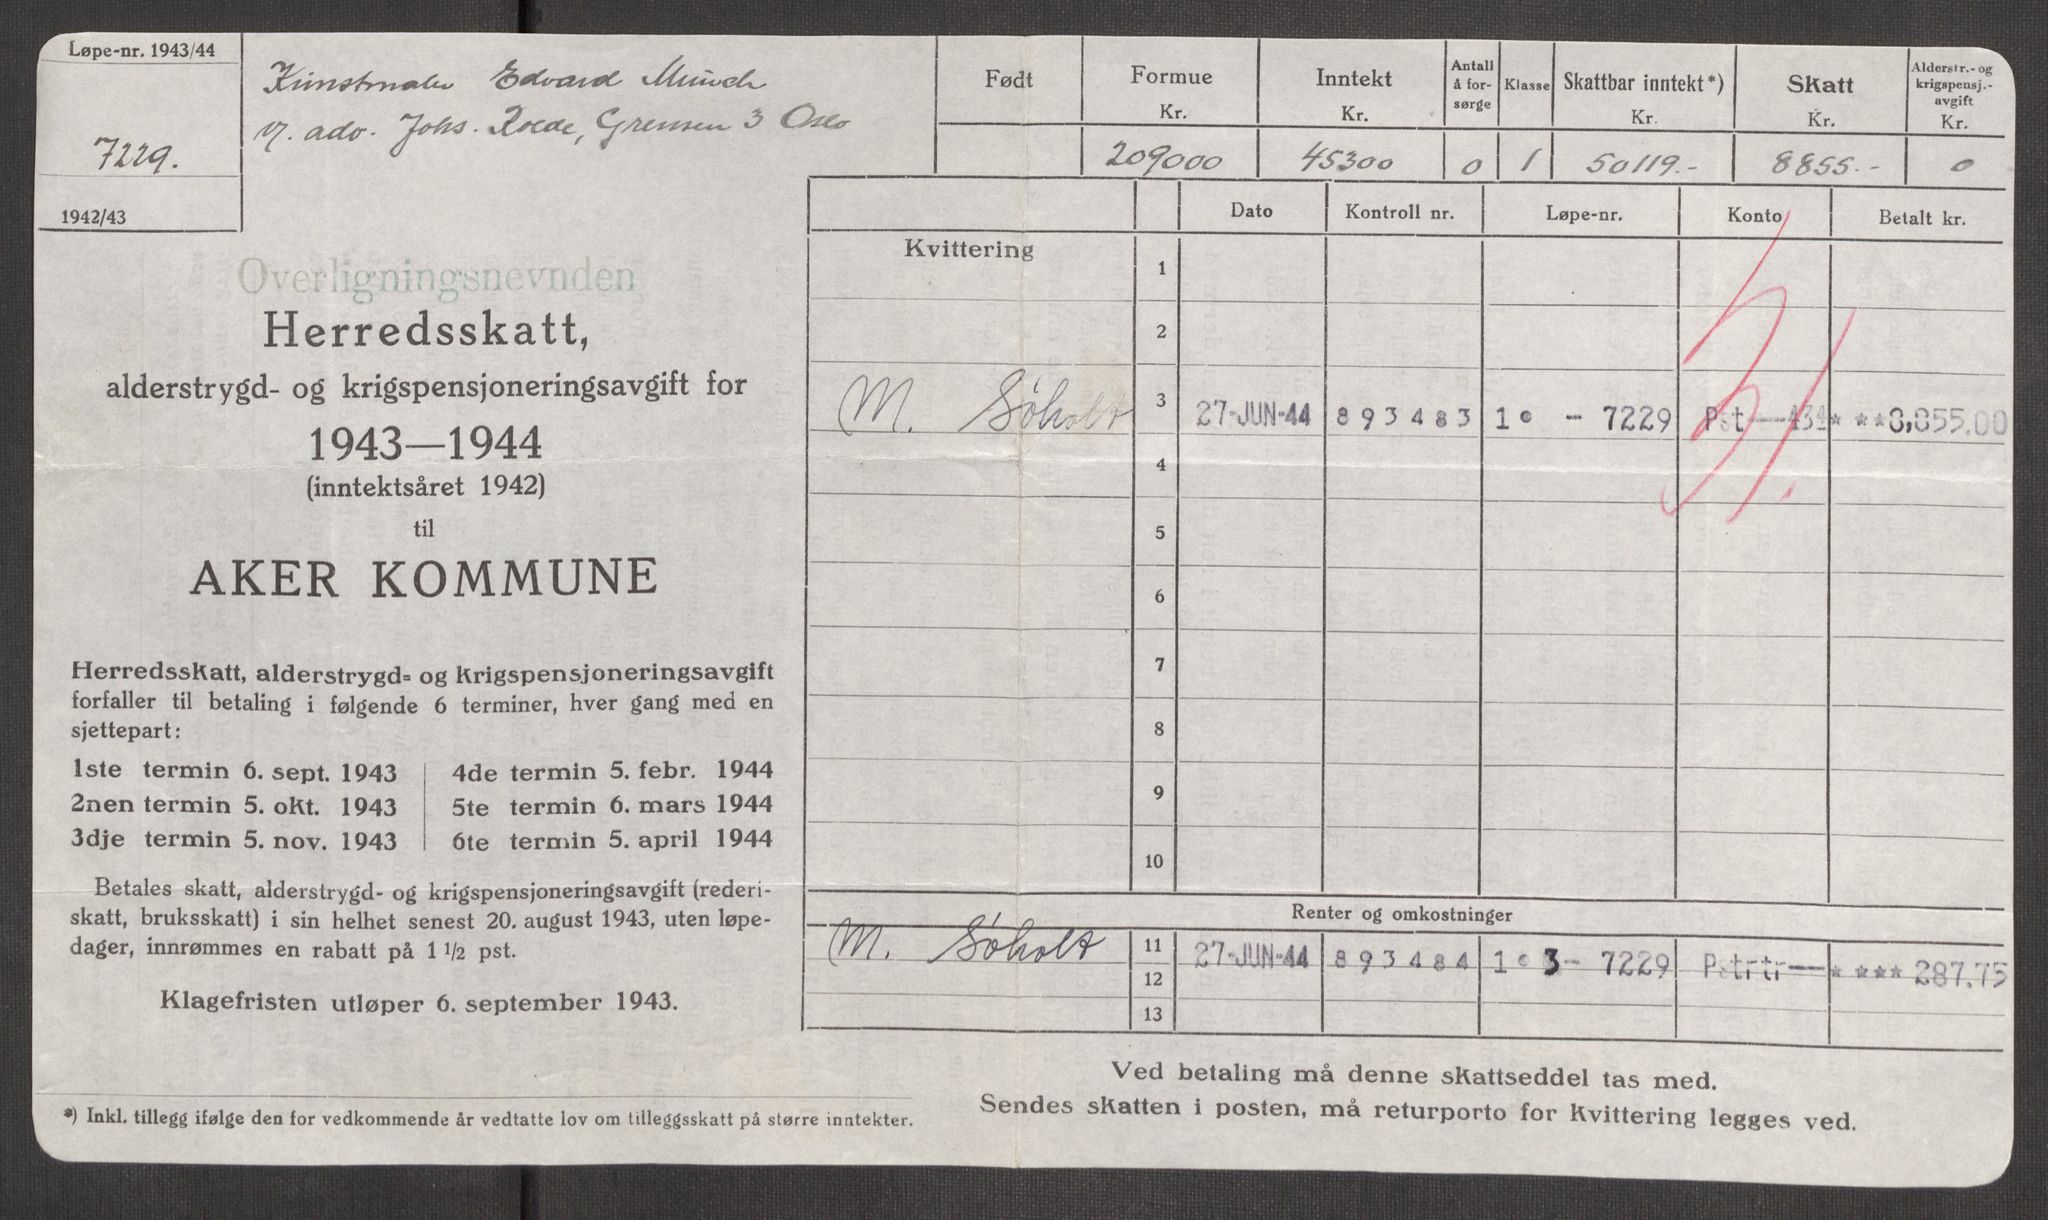 Løpe-nr. 1943/44
7229.
1942/43
Kunstmaler Edvard Munch
v/ adv. Johs. Roede, Grensen 3 Oslo
Født
Formue Kr.
209000
Inntekt Kr.
45300
Antall å for- sørge
0
Klasse
1
Skattbar inntekt*) Kr.
50119.-
Skatt Kr.
8855.-
Alderstr.- og krigspensj.- avgift Kr.
0
Overligningsnevnden
Herredsskatt,
alderstrygd- og krigspensjoneringsavgift for
1943—1944
(inntektsåret 1942)
til
AKER KOMMUNE
Herredsskatt, alderstrygd- og krigspensjoneringsavgift
forfaller til betaling i følgende 6 terminer, hver gang med en
sjettepart:
1ste termin 6. sept. 1943 4de termin 5. febr. 1944
2nen termin 5. okt. 1943 5te termin 6. mars 1944
3dje termin 5. nov. 1943 6te termin 5. april 1944
Betales skatt, alderstrygd- og krigspensjoneringsavgift (rederi-
skatt, bruksskatt) i sin helhet senest 20. august 1943, uten løpe-
dager, innrømmes en rabatt på 1 1/2 pst.
Klagefristen utløper 6. september 1943.
*) Inkl. tillegg ifølge den for vedkommende år vedtatte lov om tilleggsskatt på større inntekter.
Dato Kontroll nr. Løpe-nr. Konto Betalt kr.
Kvittering
1
2
M. Søholt 3 27-JUN-44 893483 1• - 7229 Pst — ** 8,855.00
4
5
6
7
8
9
10
Renter og omkostninger
M. Søholt 11 27-JUN-44 893484 1• 3- 7229 Pstrtr — **** 287.75
12
13
Ved betaling må denne skattseddel tas med.
Sendes skatten i posten, må returporto for kvittering legges ved.